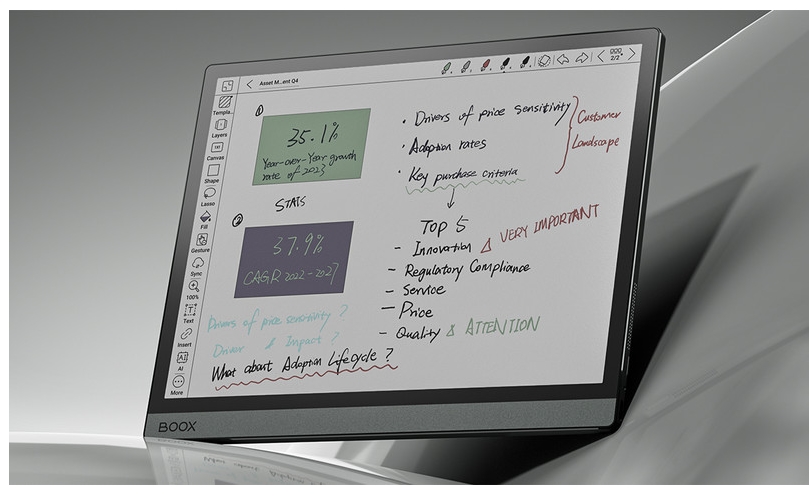 Asset M...ent Q4
2/2
Templa...
Layers
Canvas
Shape
Lasso
Fill
Gesture
Sync
100%
Text
Insert
AI
More
1
35.1%
Year-over-Year growth
rate of 2023
STATS
2
37.9%
CAGR 2022-2027
Drivers of price sensitivity ?
Driver & Impact ?
What about Adoption Lifecycle ?
• Drivers of price sensitivity
• Adoption rates
• Key purchase criteria
Customer
Landscape
TOP 5
- Innovation VERY IMPORTANT
- Regulatory Compliance
- Service
- Price
- Quality & ATTENTION
BOOX